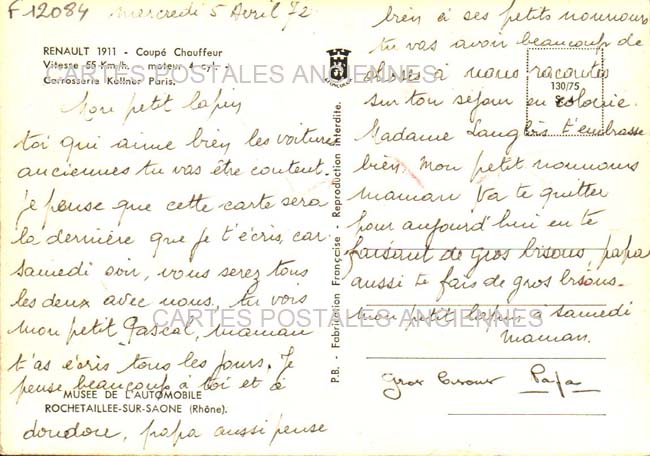 F12084 Mercredi 5 Avril 72
RENAULT 1911 - Coupé Chauffeur
Vitesse 55 Km/h. - moteur 4 cyl. -
Carrosserie Kellner Paris.
CARTES POSTALES ANCIENNES
Mon petit lapin
toi qui aime bien les voitures
anciennes tu vas être content.
je pense que cette carte sera
la dernière que je t'écris, car
samedi soir, vous serez tous
les deux avec nous, tu vois
mon petit Pascal, maman
t'as écris tous les jours. Je
pense beaucoup à toi et à
MUSEE DE L'AUTOMOBILE
ROCHETAILLEE-SUR-SAONE (Rhône).
doudou, papa aussi pense
P.B. - Fabrication Française - Reproduction interdite.
130/75
bien à ses petits nounours
tu vas avoir beaucoup de
choses à nous raconter
sur ton séjour en colonie.
Madame Langlois t'embrasse
bien. Mon petit nounours
maman va te quitter
pour aujourd'hui en te
faisant de gros bisous, papa
aussi te fais de gros bisous.
mon petit lapin à samedi
maman.
CARTES POSTALES ANCIENNES
Gros bisous Papa